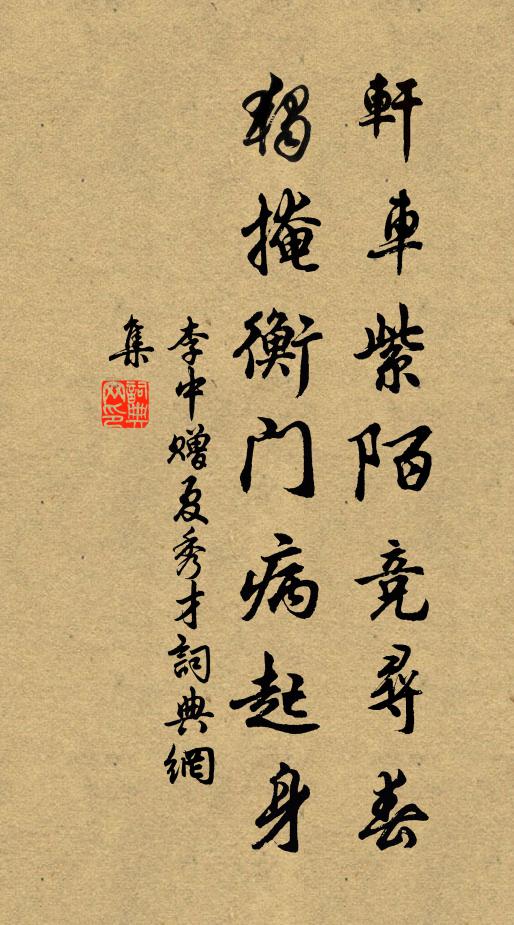 軒車紫陌竞尋春
獨掩衡門病起身
李中赠夏秀才詞典網
集
詞典網印